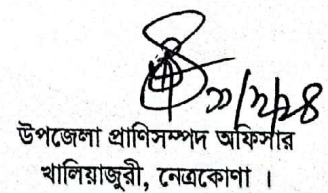 উপজেলা প্রাণিসম্পদ অফিসার
খালিয়াজুরী, নেত্রকোণা ।